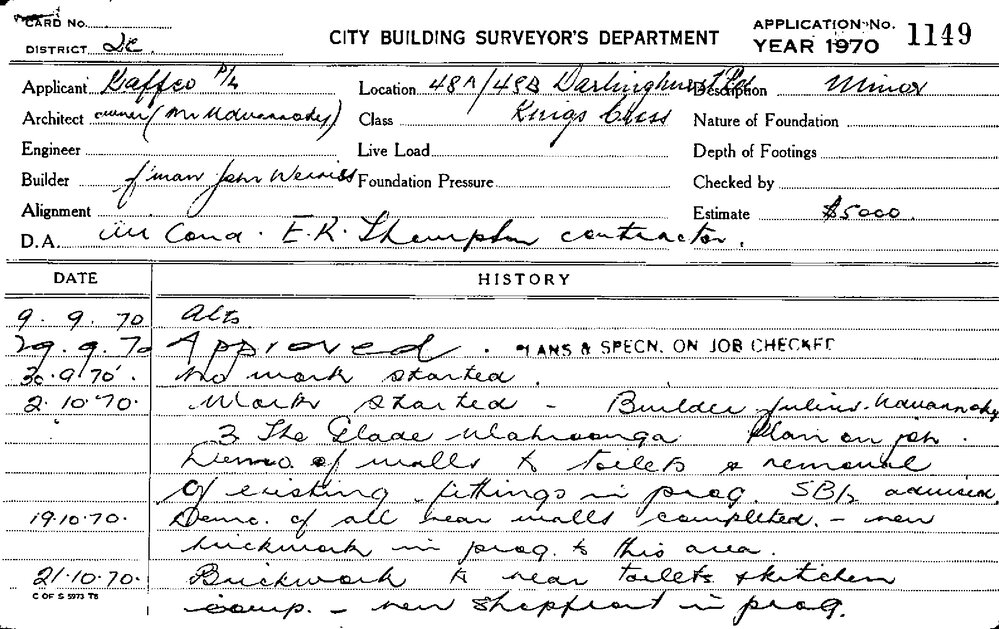 CARD No.
DISTRICT 2c
CITY BUILDING SURVEYOR'S DEPARTMENT
APPLICATION No. 1149
YEAR 1970
Applicant Gaffco P/L
Location 48A/48B Darlinghurst Rd
Description Minor
Architect owner (Mr
Class Kings Cross
Nature of Foundation
Engineer
Live Load
Depth of Footings
Builder f'man John
Foundation Pressure
Checked by
Alignment
Estimate $5000.
D.A. Air Cond. E.R. Thompson contractor.
DATE HISTORY
9. 9. 70 Alts
29. 9. 70 Approved. PLANS & SPECN. ON JOB CHECKED
30.9.70. No work started.
2.10.70. Work started - Builder Julius
3 The Glade Wahroonga Plan on job.
Demo. of walls to toilets & removal
of existing fittings in prog. SB/2 advised.
19.10.70. Demo. of all rear walls completed. - new
brickwork in prog. to this area.
21.10.70. Brickwork to rear toilets & kitchen
comp. - new shopfront in prog.
C OF S 5973 T8